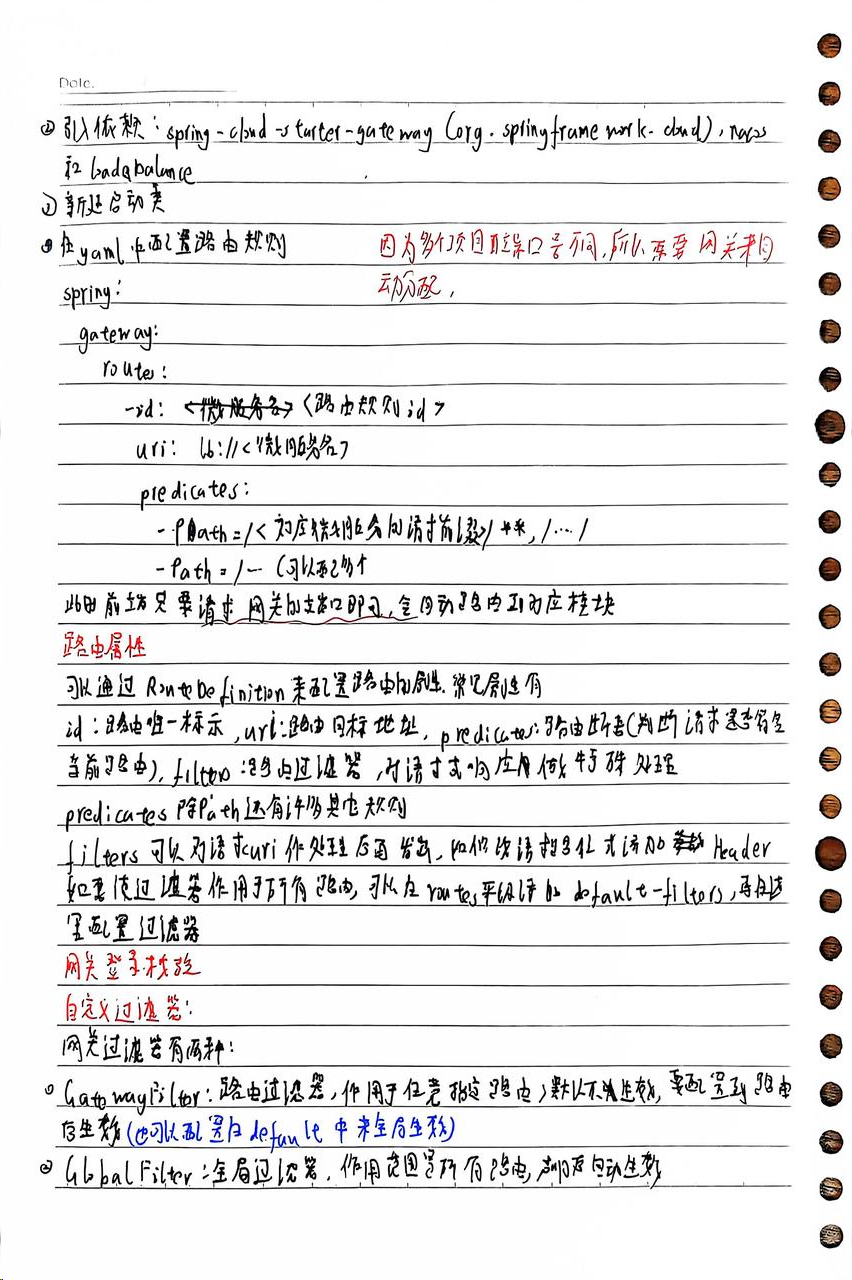 Date.
② 引入依赖：spring-cloud-starter-gateway (org.springframework.cloud), nacos
和 loadbalance
③ 新建启动类
④ 在yaml中配置路由规则
因为多个项目的端口号不同,所以需要网关来自
动分配,
spring:
gateway:
routes:
-id: <微服务名> <路由规则id>
uri: lb://<微服务名>
predicates:
-Path=/<对应微服务的请求前缀>/**, /.../
-Path=/... (可以配多个
此时前端只要请求网关的端口即可,会自动路由到对应模块
路由属性
可以通过RouteDefinition来配置路由的属性.常见属性有
id:路由唯一标示,uri:路由目标地址, predicates:路由断言(判断请求是否符合
当前路由), filters:路由过滤器,对请求或响应做特殊处理
predicates除Path还有许多其它规则
filters可以对请求uri作处理后再发出, 添加 Header
如果使过滤器作用于所有路由,可以在routes平级 default-filters,再在这
里配置过滤器
网关登录校验
自定义过滤器:
网关过滤器有两种:
① GatewayFilter:路由过滤器,作用于任意指定路由;默认不生效,要配置到路由
后生效(也可以配置在default中来全局生效)
② GlobalFilter:全局过滤器,作用范围是所有路由,声明后自动生效